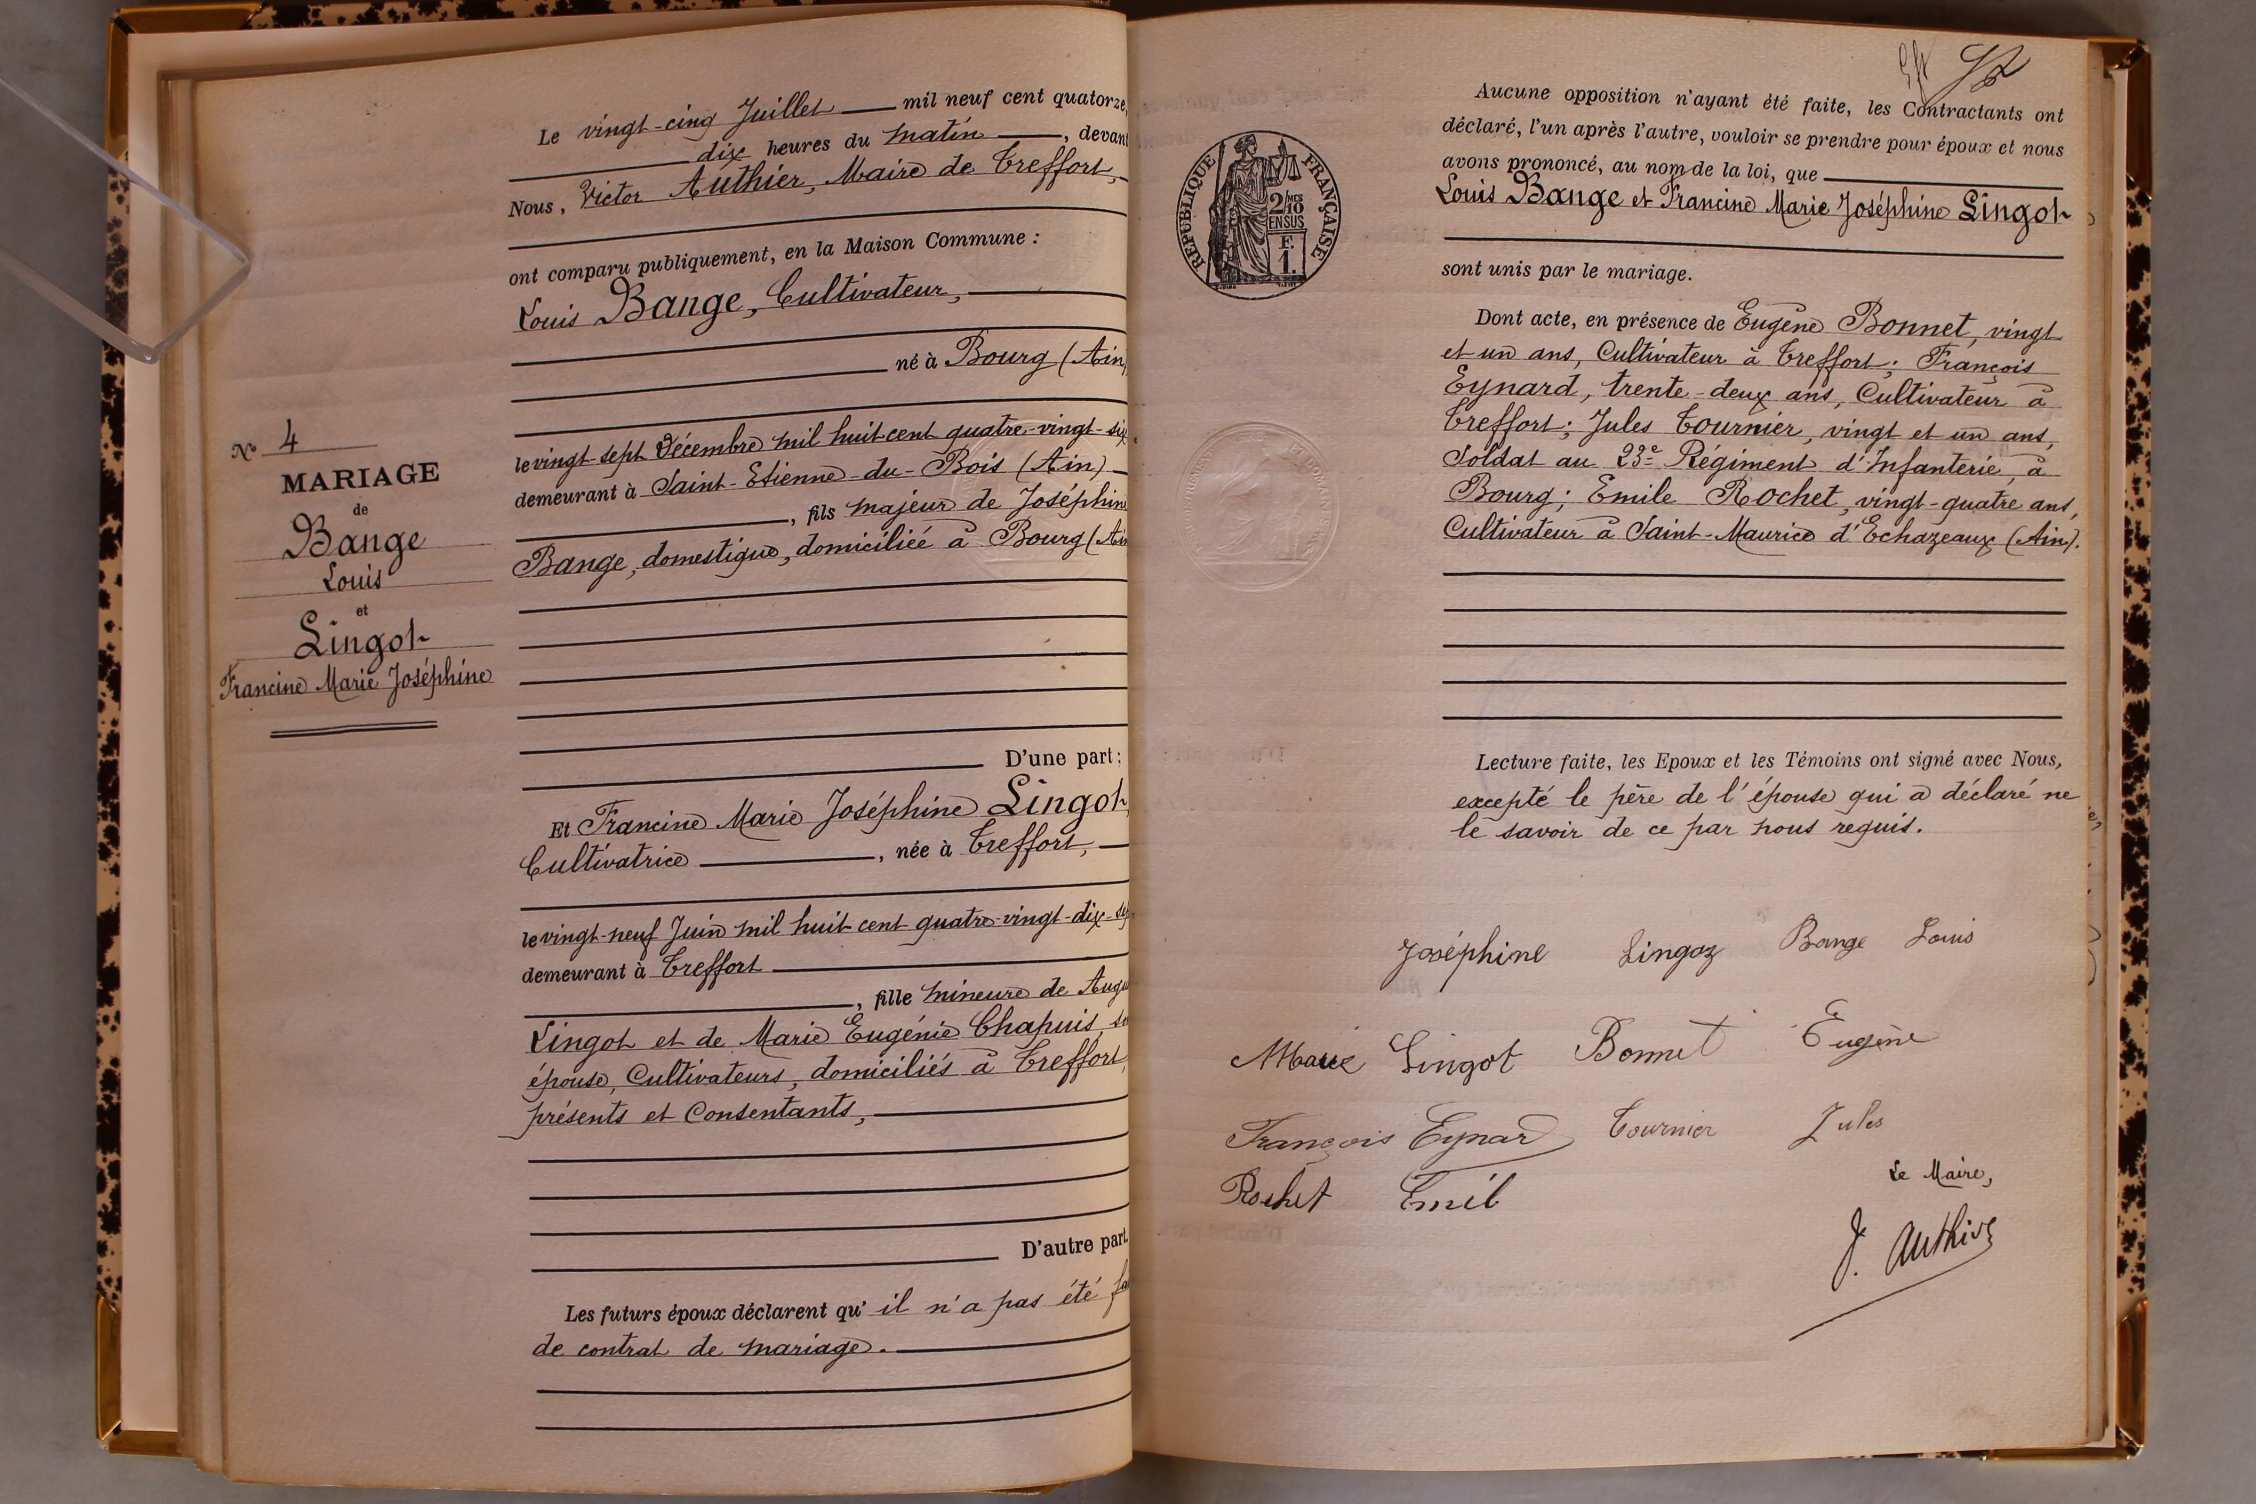 N° 4
MARIAGE
de
Bange
Louis
et
Lingot
Francine Marie Joséphine
Le vingt-cinq Juillet mil neuf cent quatorze,
dix heures du matin, devant
Nous, Victor Authier, Maire de Treffort,
ont comparu publiquement, en la Maison Commune :
Louis Bange, Cultivateur,
né à Bourg (Ain)
le vingt sept Décembre mil huit cent quatre-vingt-six
demeurant à Saint-Etienne-du-Bois (Ain)
, fils majeur de Joséphine
Bange, domestique, domiciliée à Bourg (Ain
D'une part ;
Et Francine Marie Joséphine Lingot,
Cultivatrice, née à Treffort,
le vingt-neuf Juin mil huit cent quatre-vingt-dix-
demeurant à Treffort
, fille mineure de Augu
Lingot et de Marie Eugénie Chapuis, so
épouse, Cultivateurs, domiciliés à Treffort,
présents et consentants,
D'autre part.
Les futurs époux déclarent qu'il n'a pas été fa
de contrat de mariage.
Aucune opposition n'ayant été faite, les Contractants ont
déclaré, l'un après l'autre, vouloir se prendre pour époux et nous
avons prononcé, au nom de la loi, que
Louis Bange et Francine Marie Joséphine Lingot
sont unis par le mariage.
RÉPUBLIQUE FRANÇAISE
2/10MES
EN SUS
F.
1.
Dont acte, en présence de Eugène Bonnet, vingt
et un ans, Cultivateur à Treffort; François
Eynard, trente-deux ans, Cultivateur à
Treffort; Jules Tournier, vingt et un ans,
Soldat au 23e Régiment d'Infanterie, à
Bourg; Emile Rochet, vingt-quatre ans,
Cultivateur à Saint-Maurice d'Echazeaux (Ain).
Lecture faite, les Epoux et les Témoins ont signé avec Nous,
excepté le père de l'épouse qui a déclaré ne
le savoir de ce par nous requis.
Joséphine Lingoz Bange Louis
Marie Lingot Bonnet Eugène
François Eynard Tournier Jules
Rochet Emil
Le Maire,
V. Authier